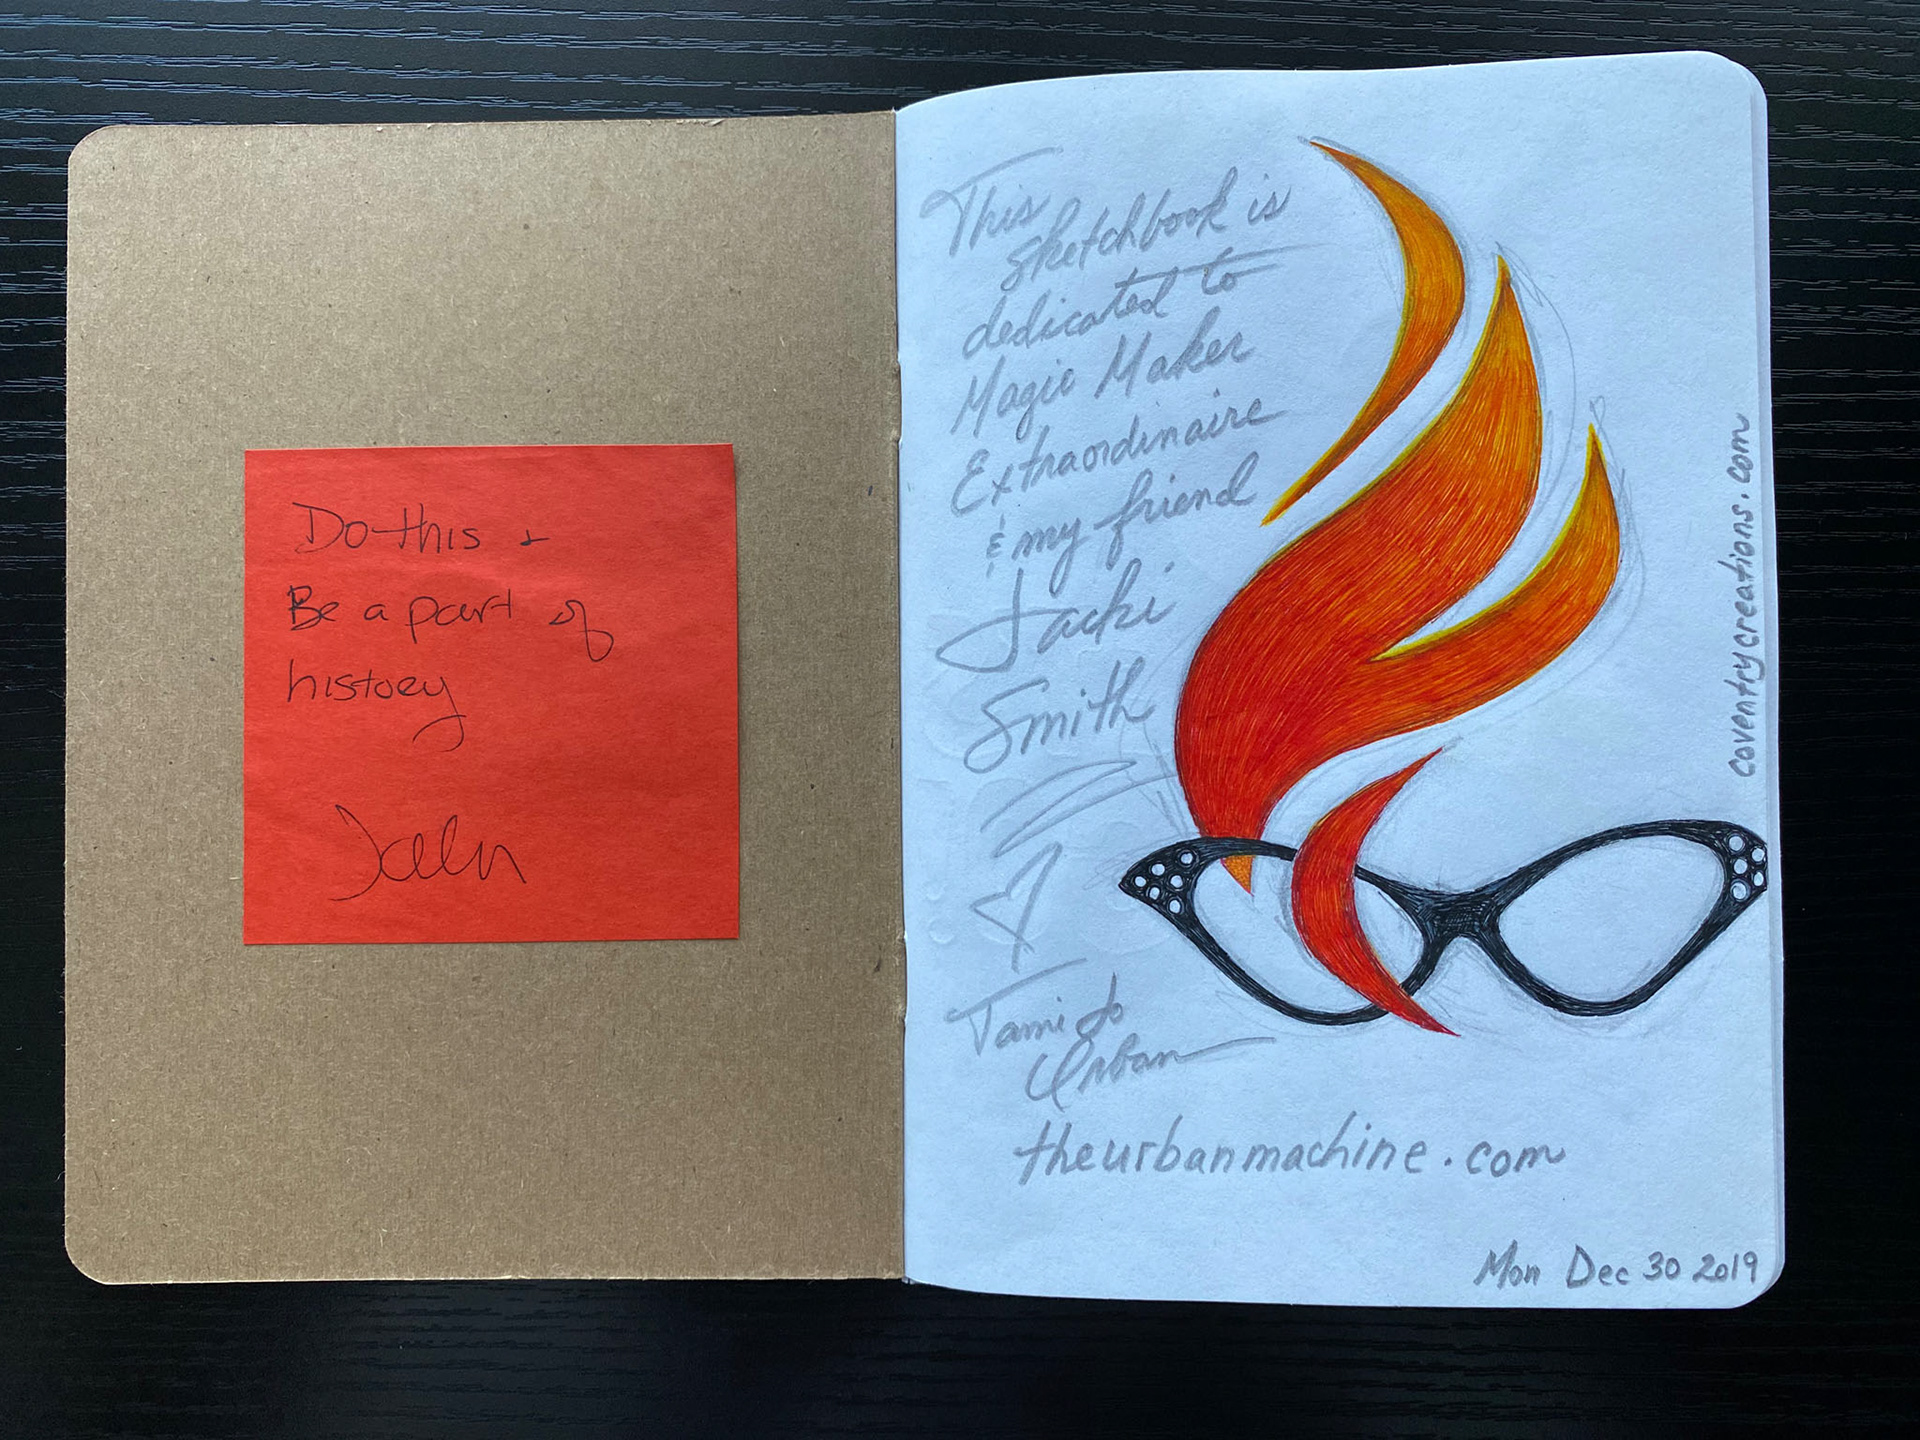 Do this +
Be a part of
history
This
sketchbook is
dedicated to
Magic Maker
Extraordinaire
& my friend
Jacki
Smith
Tami Jo
Urban
theurbanmachine.com
coventrycreations.com
Mon Dec 30 2019